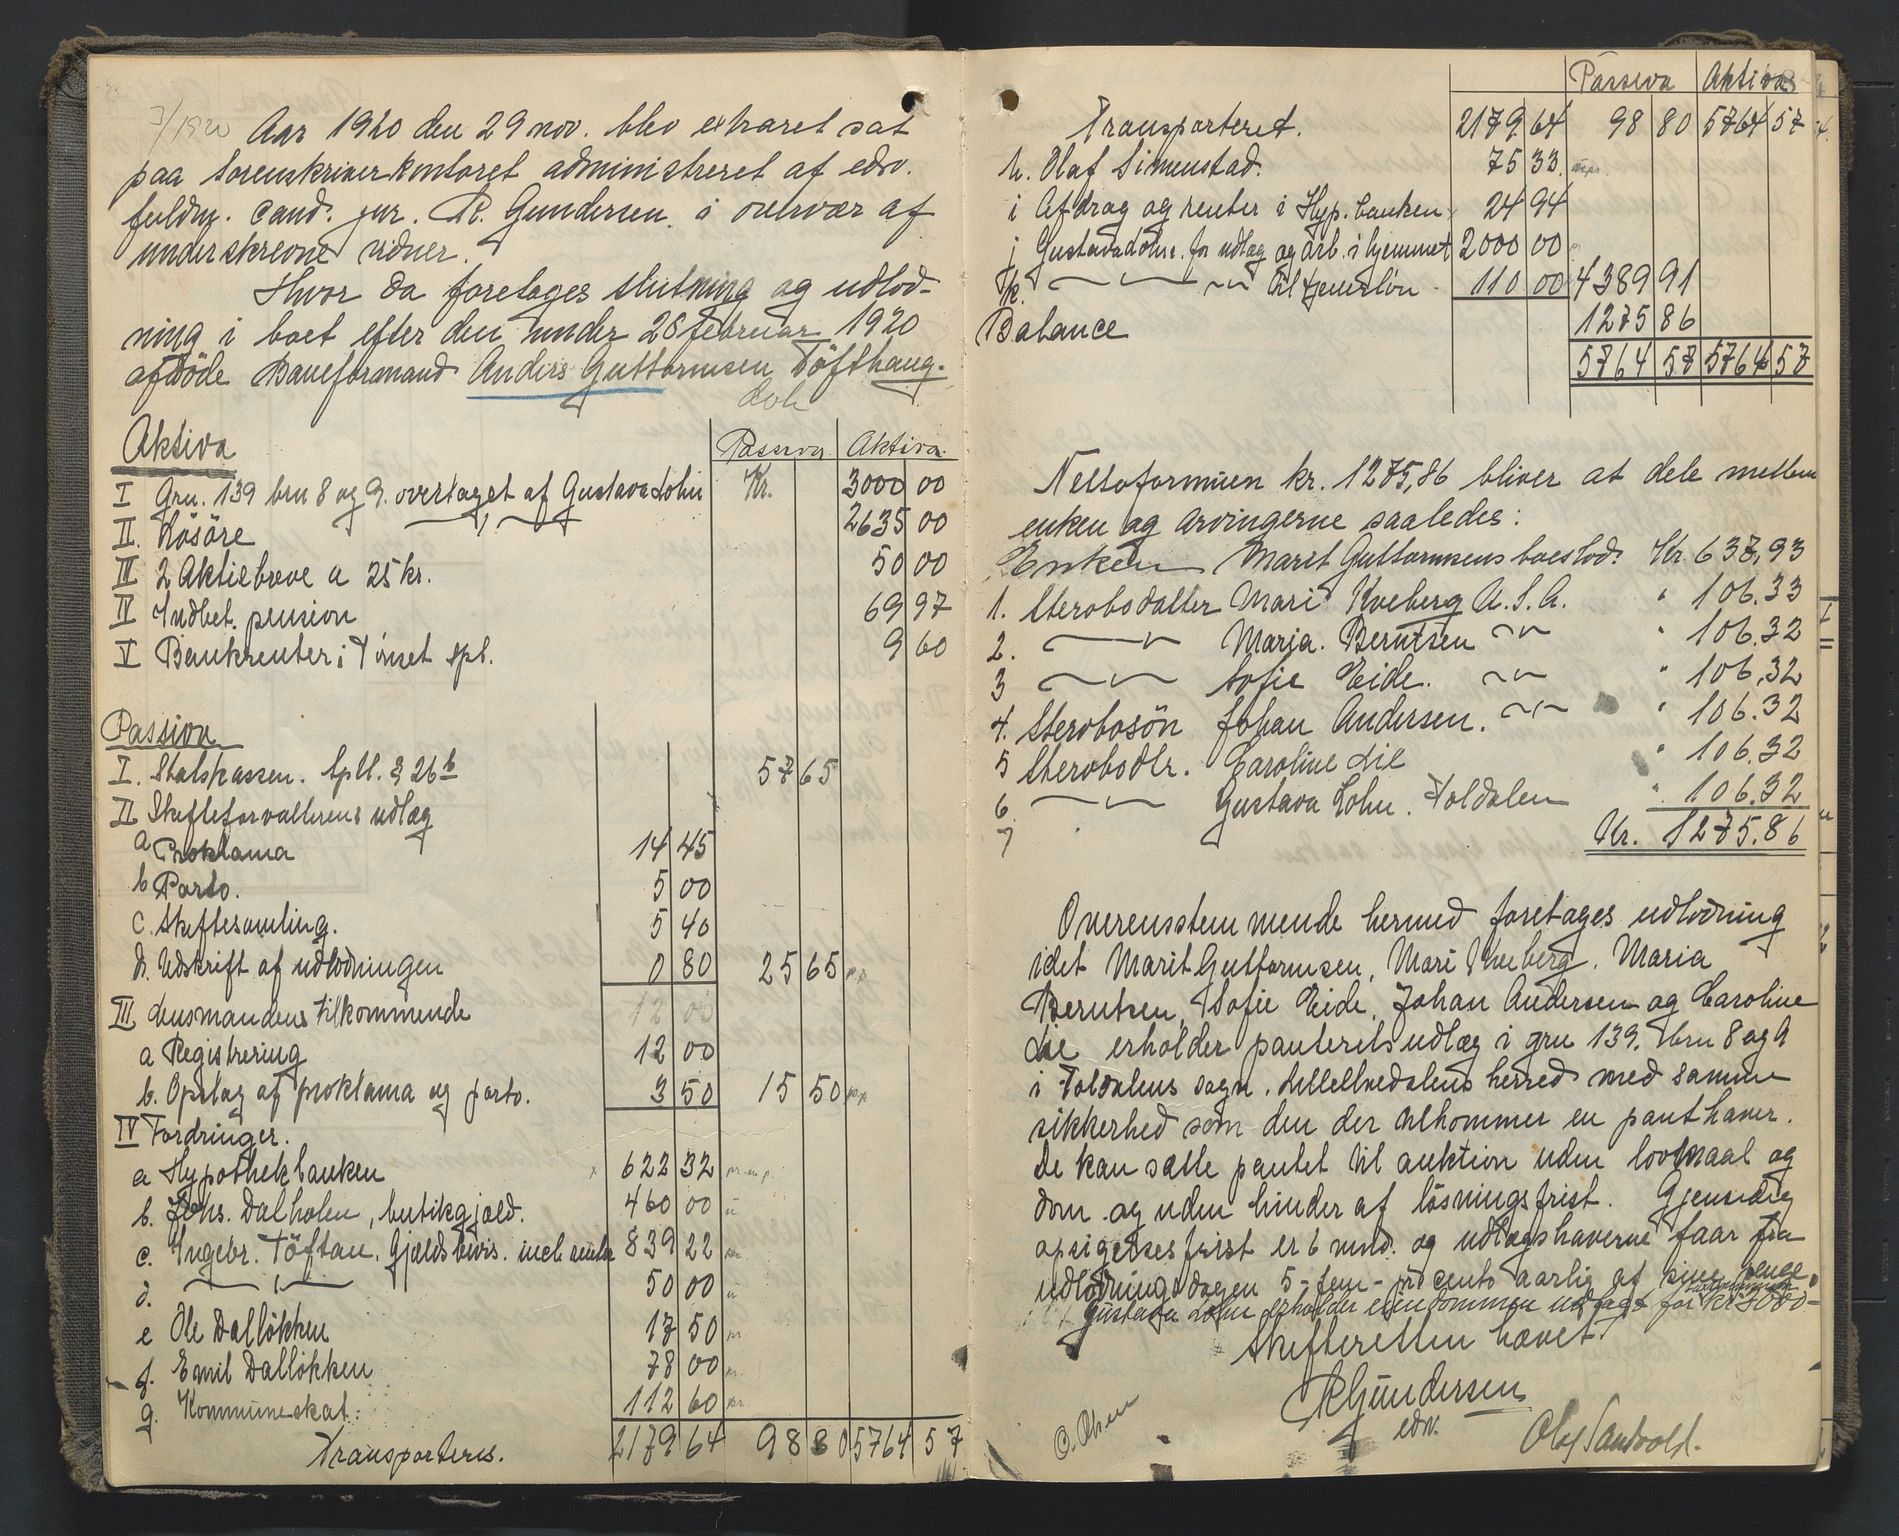 7/1920 Aar 1920 den 29 nov. blev extraret sat
paa sorenskriverkontoret administreret af edsv.
fuldm. cand. jur. R. Gundersen i overvær af
underskrevne vidner.
Hvor da foretages slutning og udlod-
ning i boet efter den under 28 februar 1920
afdöde Baneformand Anders Guttormsen Töfthaug.
Aktiva
Passiva Aktiva
I Grn. 139 brn 8 og 9. overtaget af Gustava Lohn Kr. 3000 00
II. Lösöre 2635 00
III 2 Aktiebreve a 25 kr. 50 00
IV Indbet. pension 69 97
V Bankrenter i Tönset spb. 9 60
Passiva
I. Statskassen. Spll. § 26 b 57 65
II Skifteforvalterens udlæg
a Proklama 14 45
b Porto. 5 00
c. Skiftesamling. 5 40
d. Udskrift af udlodningen 0 80 25 65
III Lensmandens tilkommende 12 00
a Registrering 12 00
b. Opslag af proklama og porto. 3 50 15 50
IV Fordringer.
a Hypothekbanken 622 32
b. Johs. Dalholen, butikgjæld. 460 00
c. Ingebr. Töftan. Gjældsbevis. incl. renter 839 22
d. — " — 50 00
e Ole Dallökken 17 50
f. Emil Dallökken 78 00
g. Kommuneskat. 112 60
Transporteres. 2179 64 98 80 5764 57
Passiva Aktiva
Transporteret. 2179 64 98 80 5764 57
h. Olaf Simenstad. 75 33
i Afdrag og renter i Hyp.banken 24 94
j Gustava Lohn. for udlæg og arb. i hjemmet 2000 00
k. — " — " til tjenerløn 110 00 4389 91
Balance 1275 86
5764 57 5764 57
Nettoformuen kr. 1275,86 bliver at dele mellem
enken og arvingerne saaledes:
Enken Marit Guttormsens boeslod. Kr. 637,93
1. Sterbodatter Mari Kveberg U.S.A. " 106.33
2. — " — Marja Berntsen — " — " 106.32
3 — " — Sofie Eide. — " — " 106,32
4. Sterbosön Johan Andersen. — " — " 106.32
5 Sterbodtr. Caroline Lie " 106.32
6. — " — Gustava Lohn. Foldalen " 106.32
7 Kr. 1275.86
Overensstemmende hermed foretages udlodning
idet Marit Guttormsen, Mari Kveberg. Maria
Berntsen, Sofie Eide, Johan Andersen og Caroline
Lie erholder panteretsudlæg i grn 139. brn 8 og 9
i Foldalens sogn. Lilleelvedalens herred med samme
sikkerhed som den der tilkommer en panthaver.
De kan sætte pantet til auktion uden lovmaal og
dom og uden hinder af lösningsfrist. Gjensidig
opsigelsesfrist er 6 mnd. og udlægshaverne faar fra
udlodningsdagen 5 - fem - procents aarlig af sine penge.
Gustava Lohn erholder eiendommen udlagt for kr 3000-
Skifteretten hævet.
RGundersen
edsv.
O. Olsen
Olaf Sandvold.